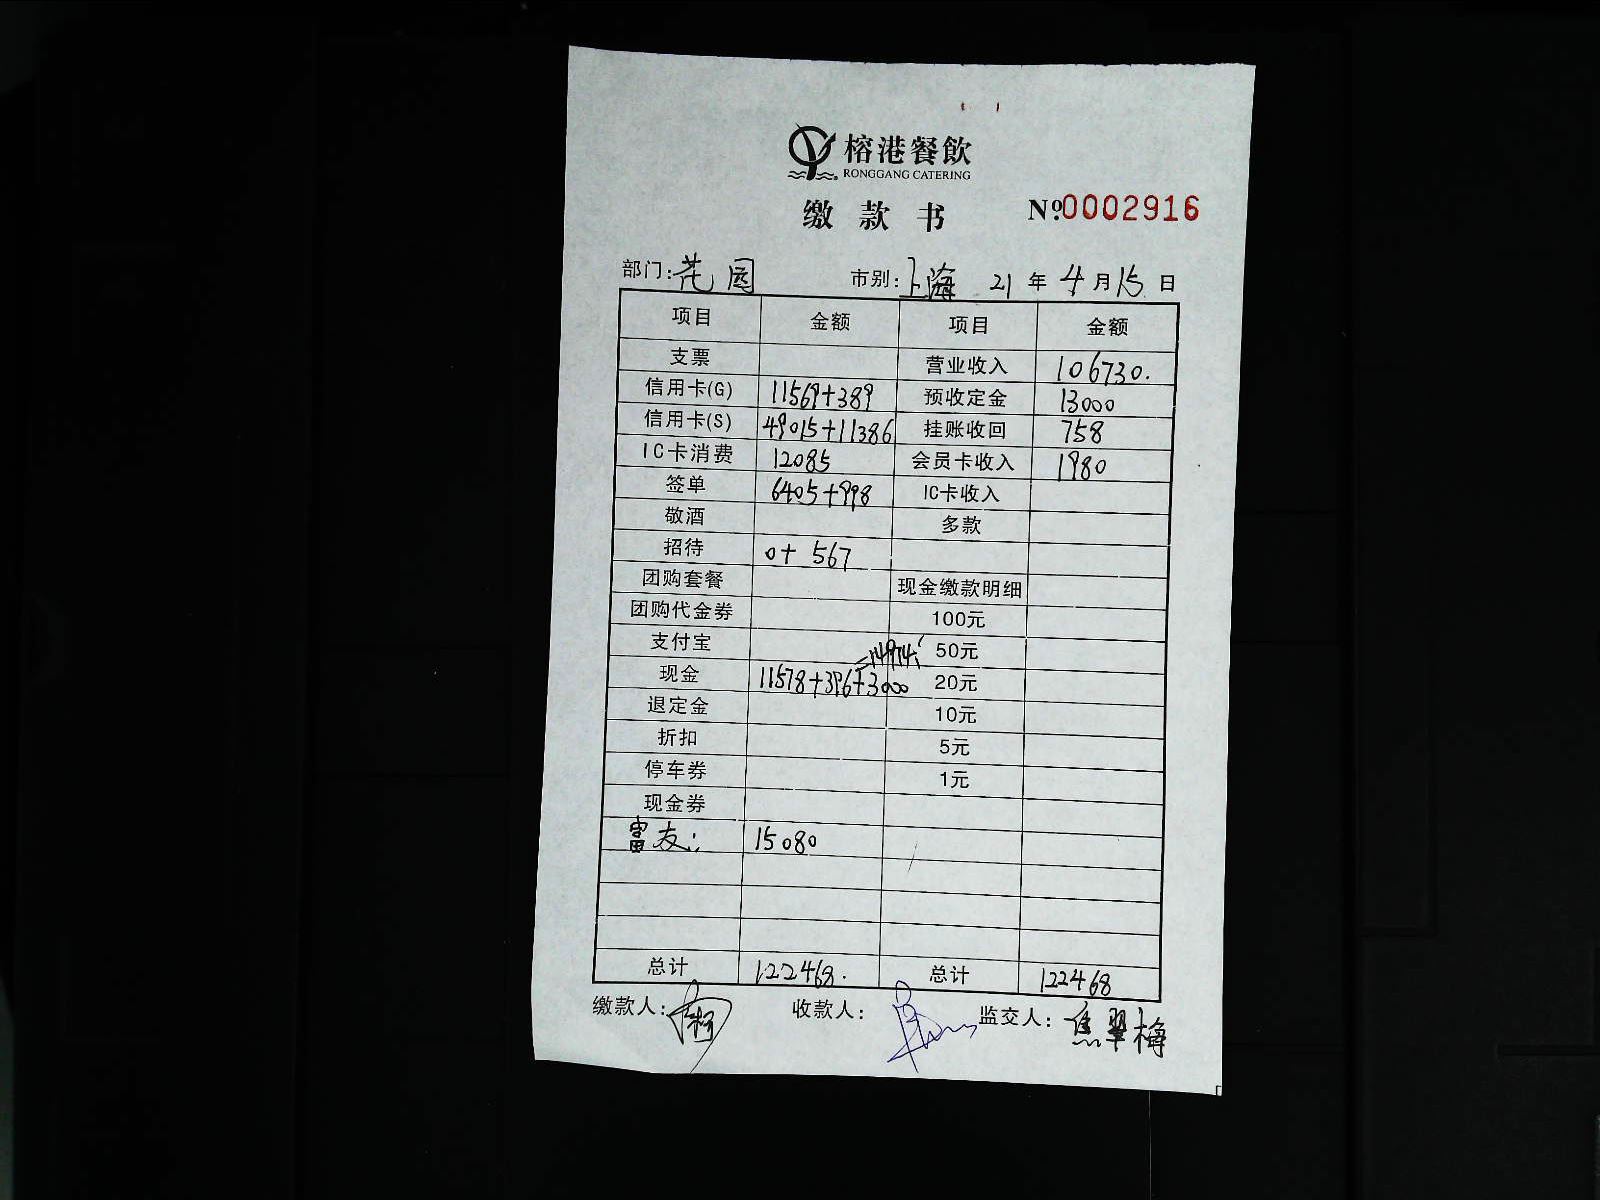 榕港餐飲
RONGGANG CATERING
缴款书 №0002916
部门:花园 市别:上海 21年4月15日
项目 金额 项目 金额
支票 营业收入 106730.
信用卡(G) 11569+389 预收定金 13000
信用卡(S) 49015+11386 挂账收回 758
IC卡消费 12085 会员卡收入 1980
签单 6405+998 IC卡收入
敬酒 多款
招待 0+567
团购套餐 现金缴款明细
团购代金券 100元
支付宝 50元
=14974
现金 11578+396+3000 20元
退定金 10元
折扣 5元
停车券 1元
现金券
富友: 15080
总计 122468. 总计 122468
缴款人: 收款人: 监交人:焦翠梅